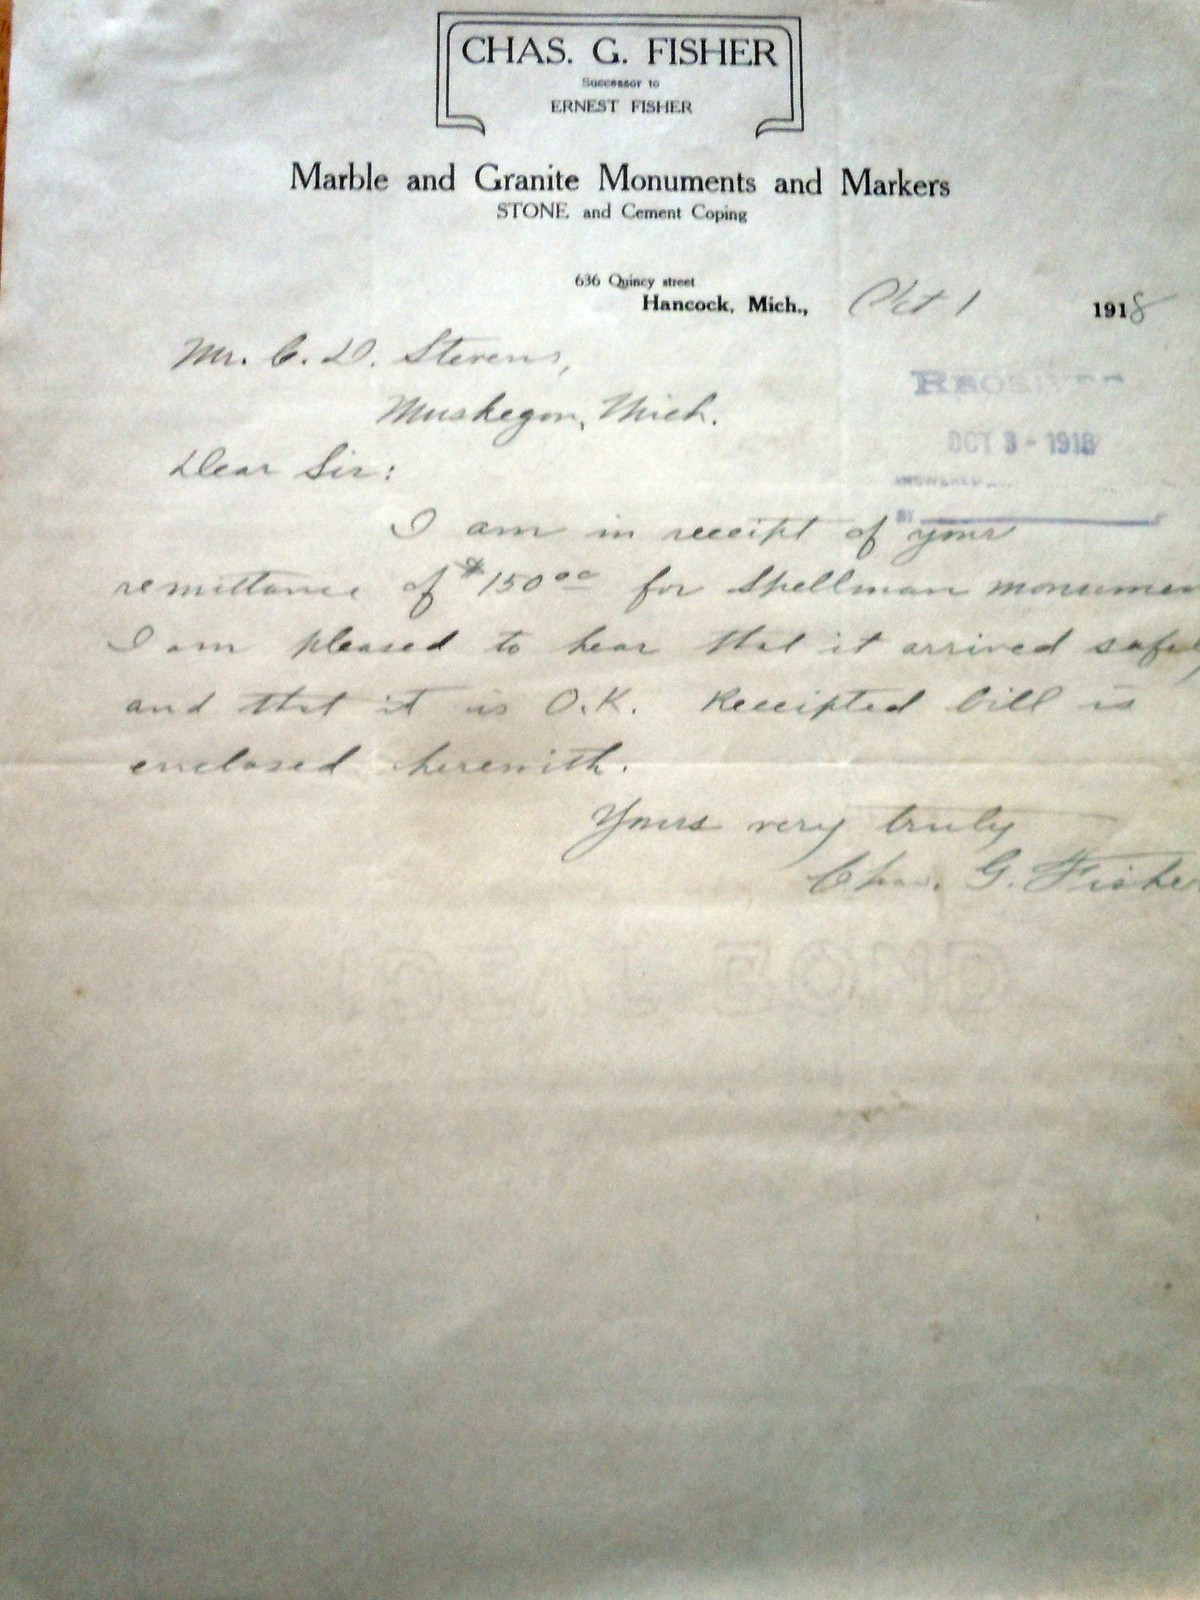 CHAS. G. FISHER
Successor to
ERNEST FISHER
Marble and Granite Monuments and Markers
STONE and Cement Coping
636 Quincy street
Hancock, Mich., Oct 1 1918
Mr. C. D. Stevens,
Muskegon, Mich.
RECEIVED
OCT 3 - 1918
ANSWERED
BY
Dear Sir:
I am in receipt of your
remittance of $150 00 for Spellman monumen
I am pleased to hear that it arrived safely
and that it is O.K. Receipted bill is
enclosed herewith.
Yours very truly
Chas. G. Fisher